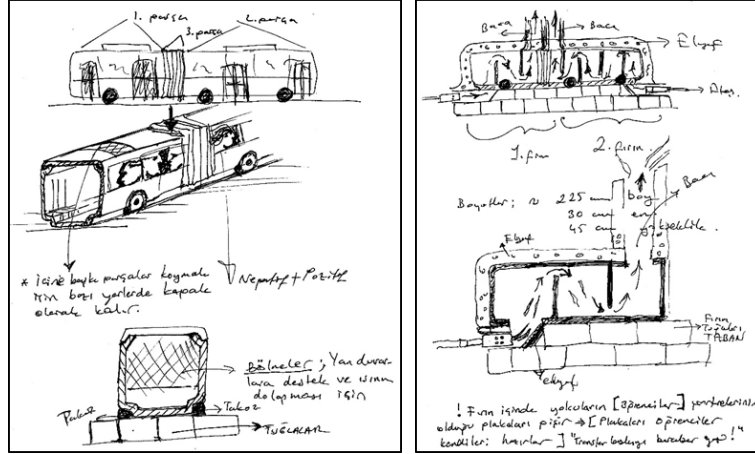 1. parça
3. parça
2. parça
* içine başka parçalar koymak
için bazı yerlerde kapalı
olarak kalır.
Negatif + Pozitif
Bölmeler; Yan duvar-
lara destek ve ısının
dolaşması için
Takoz
Takoz
TUĞLALAR
Baca
Baca
Elyaf
Ateş
1. fırın
2. fırın
Baca
Boyutlar; ~ 225 cm boy
30 cm en
45 cm yükseklik.
Elyaf
Fırın
Tuğlaları
TABAN
elyaf
! Fırın içinde yolcuların [öğrenciler] portrelerinin
olduğu plakaları pişir → [Plakaları öğrenciler
kendileri hazırlar] "Transfer baskıyı beraber yap!"